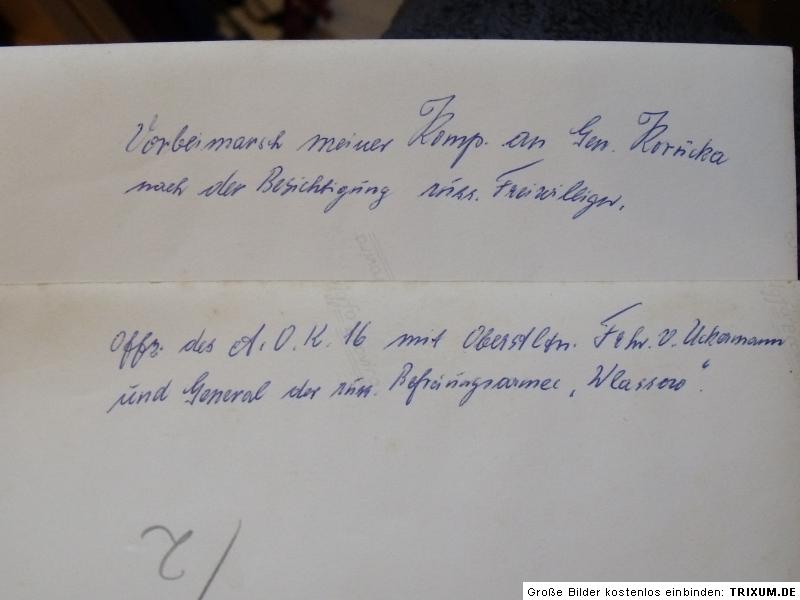 Vorbeimarsch meiner Komp. an Gen. Korücka
nach der Besichtigung russ. Freiwilliger.
Offz. des A.O.K. 16 mit Oberstltn. Frhr. v. Uckermann
und General der russ. Befreiungsarmee „Wlassow“.
/2
Große Bilder kostenlos einbinden: TRIXUM.DE